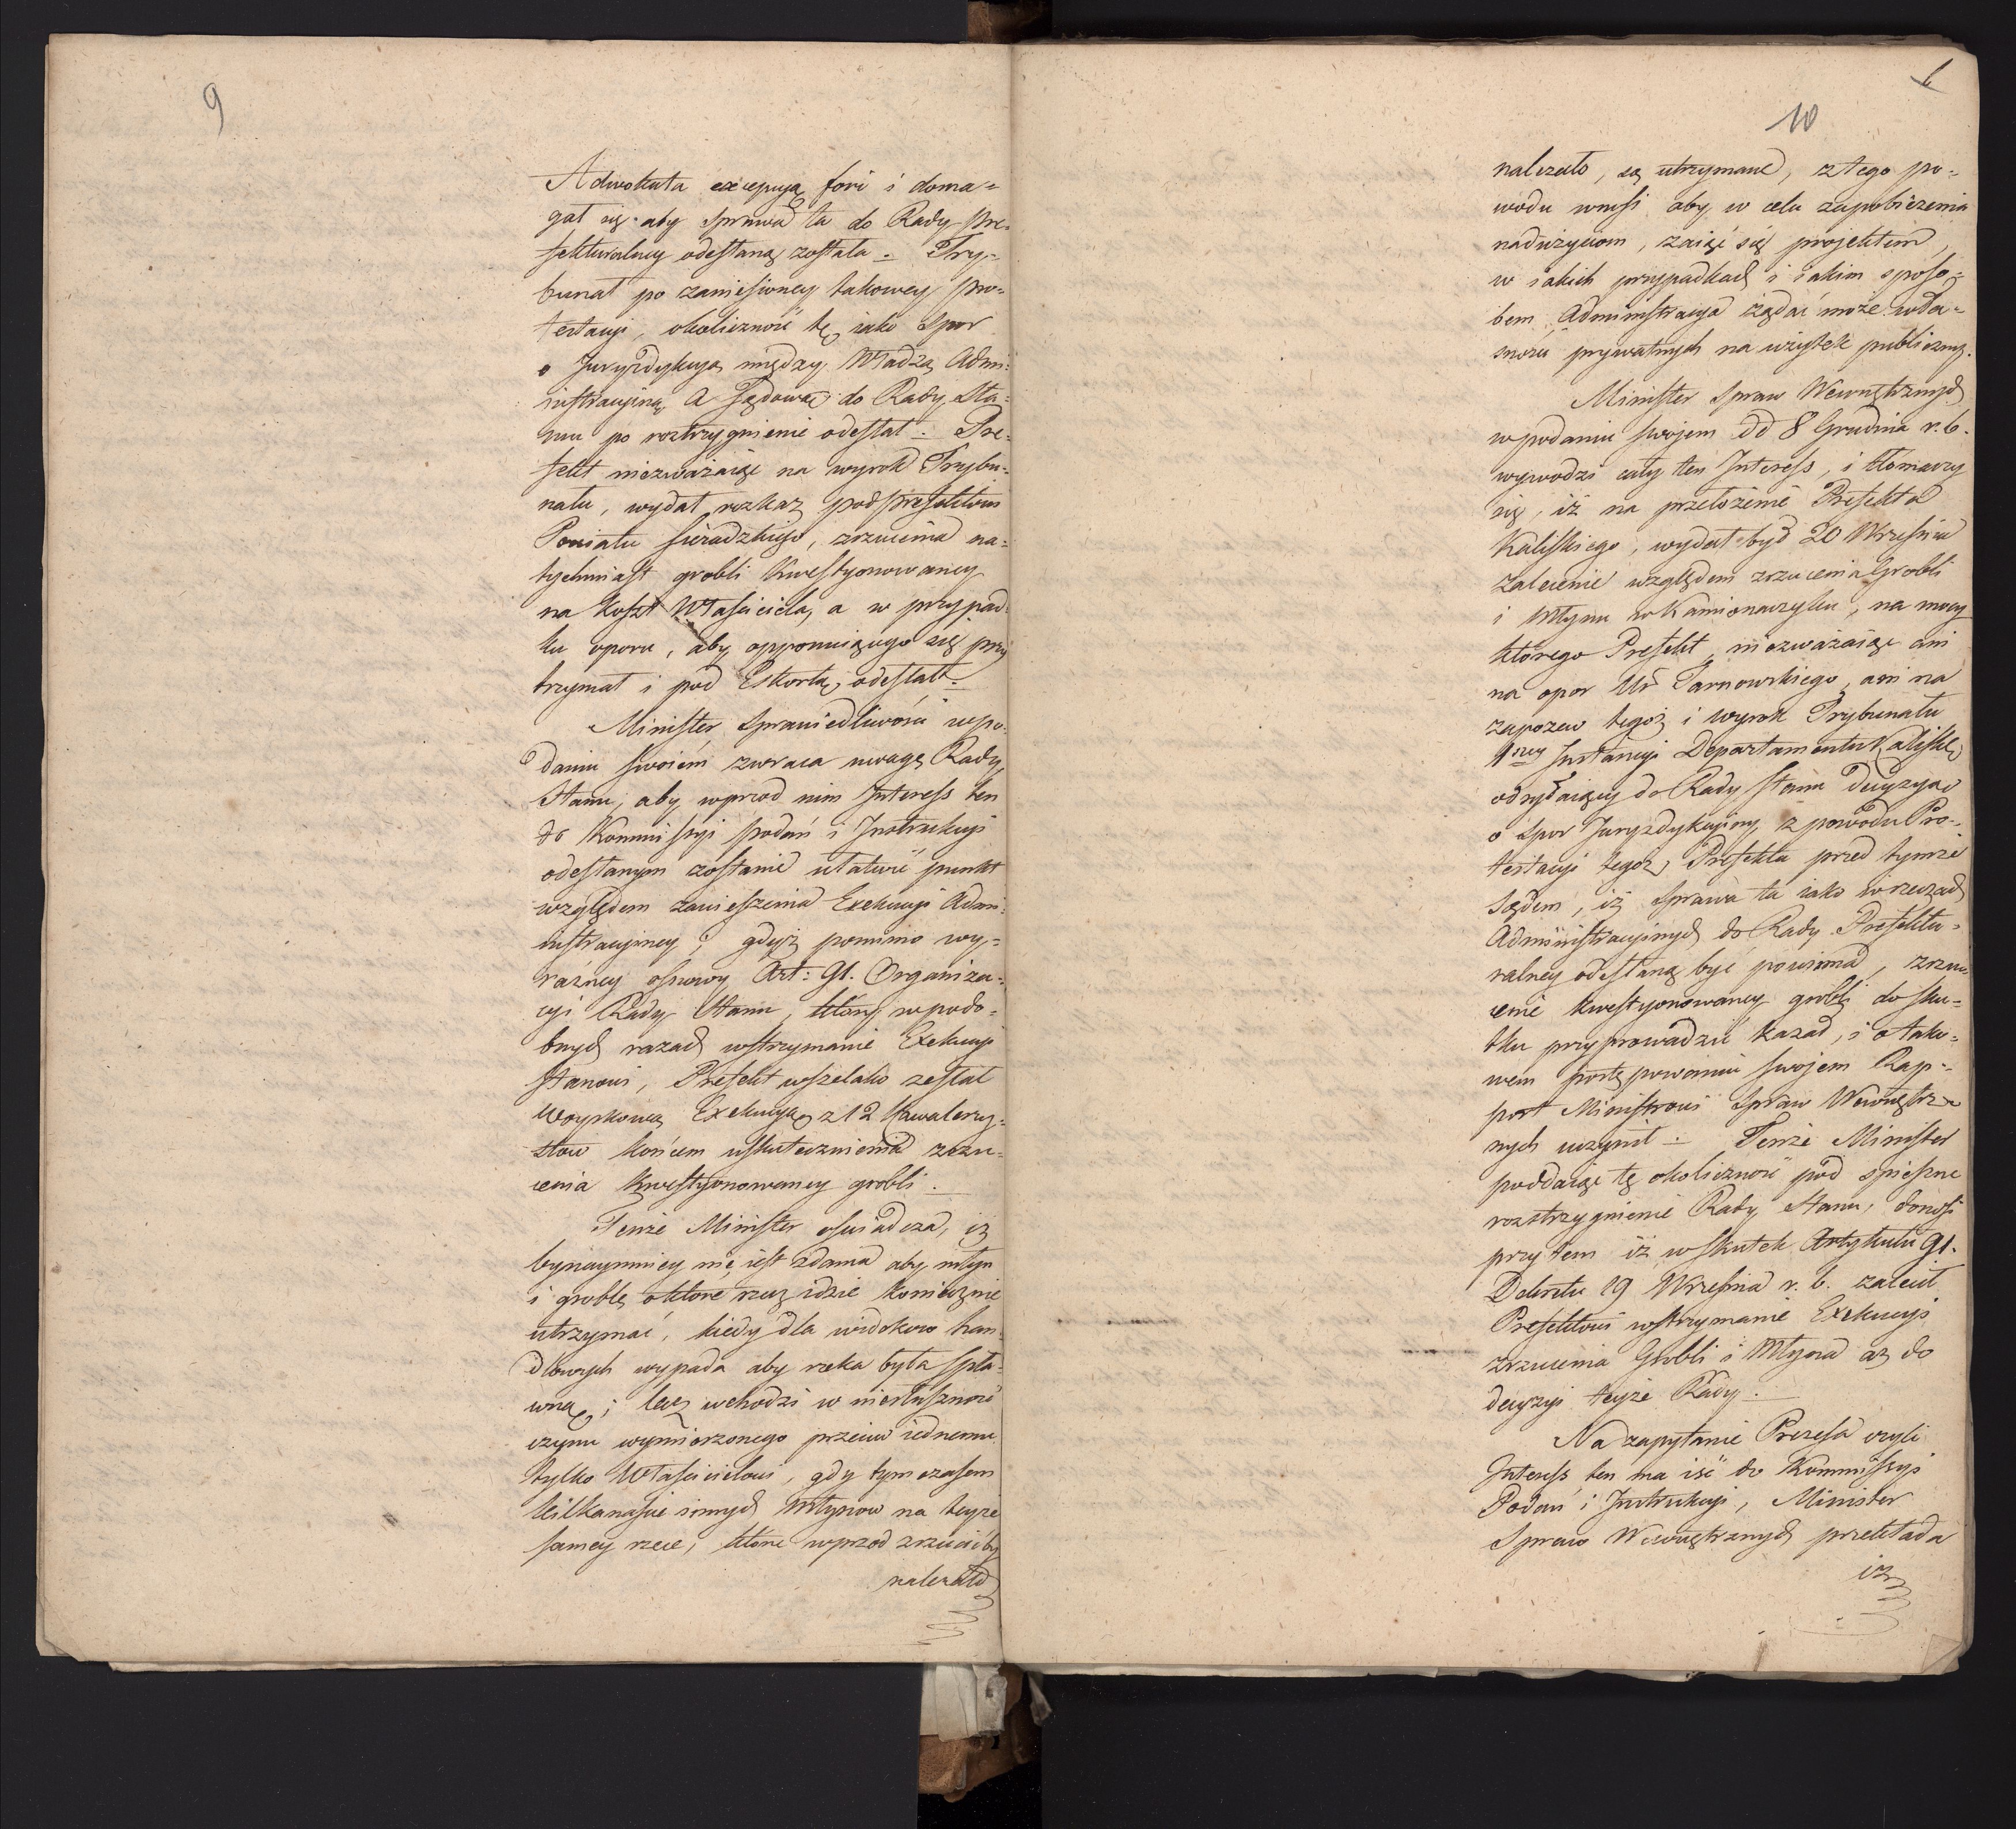 9
Adwokata excepują fori i doma=
gał się aby sprawa ta do Rady pre=
fekturalney odesłaną została. Try=
bunał po zaniesioney takowey pro=
testacyi, okoliczność tę iako Spor
o Juryzdykcyą między Władzą Admi=
nistracyiną a Sądową do Rady Sta=
nu po roztrzygnienie odesłał. Pre=
fekt niezważaiąc na wyrok Trybu=
nału, wydał rozkaz podprefektowi
Powiatu Sieradzkiego, zrzucenia na=
tychmiast grobli kwestyonowaney
na koszt Właściciela, a w przypad=
ku oporu, aby opponuiącego się przy
trzymał i pod Eskortą odesłał.
Minister Sprawiedliwości w po=
daniu swoiem zwraca uwagę Rady
Stanu, aby wprzod nim Interess ten
do Kommissyi podań i Instrukcyi
odesłanym zostanie ułatwić punkt
względem zawieszenia Exekucyi Admi=
nistracyiney; gdyż pomimo wy=
raźney osnowy Art: 91. Organiza=
cyi Rady Stanu, który w podo=
bnych razach wstrzymanie Exekucyi
stanowi, Prefekt wszelako zesłał
woyskową Exekucyą z 12 Kawalerzy=
stow końcem uskutecznienia zrzu=
cenia kwestyonowaney grobli.
Tenże Minister oświadcza, iż
bynaymniey nie iest zdania aby młyn
i groblę o które rzecz idzie koniecznie
utrzymać, kiedy dla widokow han=
dlowych wypada aby rzeka była spła=
wną; lecz wchodzi w niesłuszność
czynu wymierzonego przeciw iednemu
tylko Właścicielowi, gdy tymczasem
kilkanaście innych młynow na teyże
samey rzece, które wprzod zrzucićby
należało
10
należało, są utrzymane, z tego po=
wodu wnosi aby w celu zapobieżenia
nadużyciom, zaiąć się projektem,
w iakich przypadkach i iakim sposo=
bem Administracya żądać może włas=
ności prywatnych na użytek publiczny.
Minister Spraw Wewnętrznych
w podaniu swojem dd 8 Grudnia r. b.
wywodzi cały ten Interess, i tłomaczy
się, iż na przełożenie Prefekta
Kaliskiego, wydał był 20 Września
zalecenie względem zrzucenia Grobli
i Młyna w Kamionaczyku, na mocy
którego Prefekt, niezważaiąc ani
na opor Ur Tarnowskiego, ani na
zapozew tegoż i wyrok Trybunału
1szey Instancyi Departamentu Kalisk.
odsyłaiący do Rady Stanu decyzyą
o spor Juryzdykcyiny, z powodu Pro=
testacyi tegoż Prefekta przed tymże
Sądem, iż sprawa ta iako w rzeczach
Administracyinych do Rady Prefektu=
ralney odesłaną być powinna, zrzu=
cenie kwestyonowaney grobli do sku=
tku przyprowadzić kazał, i o tako=
wem postępowaniu swojem Rap=
port Ministrowi Spraw Wewnętrz=
nych uczynił. Tenże Minister
poddaiąc tę okoliczność pod spieszne
rozstrzygnienie Rady Stanu, donosi
przytem iż w skutek Artykułu 91.
Dekretu 19 Września r. b. zalecił
Prefektowi wstrzymanie Exekucyi
zrzucenia Grobli i Młyna aż do
decyzyi teyże Rady.
Na zapytanie Prezesa czyli
Interess ten ma iść do Kommissyi
Podań i Instrukcyi, Minister
Spraw Wewnętrznych przekłada
iż